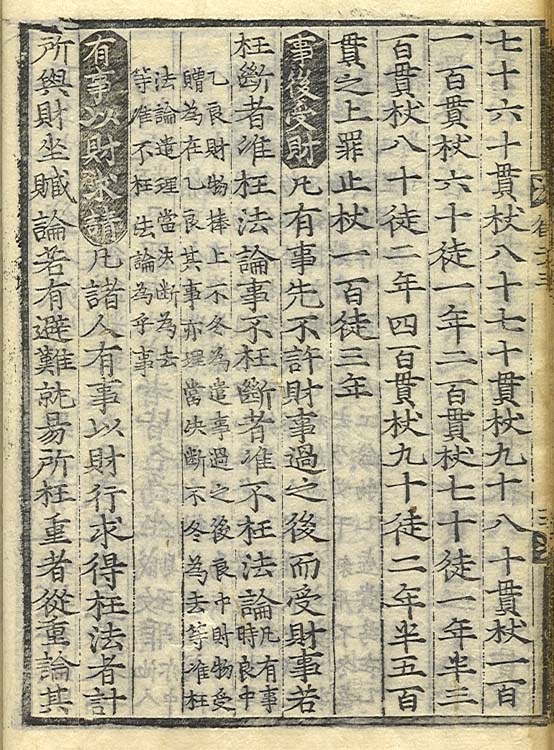 七十六十貫杖八十七十貫杖九十八十貫杖一百
一百貫杖六十徒一年二百貫杖七十徒一年半三
百貫杖八十徒二年四百貫杖九十徒二年半五百
貫之上罪止杖一百徒三年
事後受財凡有事先不許財事過之後而受財事若
枉斷者准枉法論事不枉斷者准不枉法論凡有事時良中
乙良財物捧上不冬為遣事過之後良中財物受
贈為在乙良其事亦理當决斷不冬為去等准枉
法論遣理當决断為去
等准不枉法論為乎事
有事以財求請凡諸人有事以財行求得枉法者計
所與財坐贓論若有避難就易所枉重者從重論其